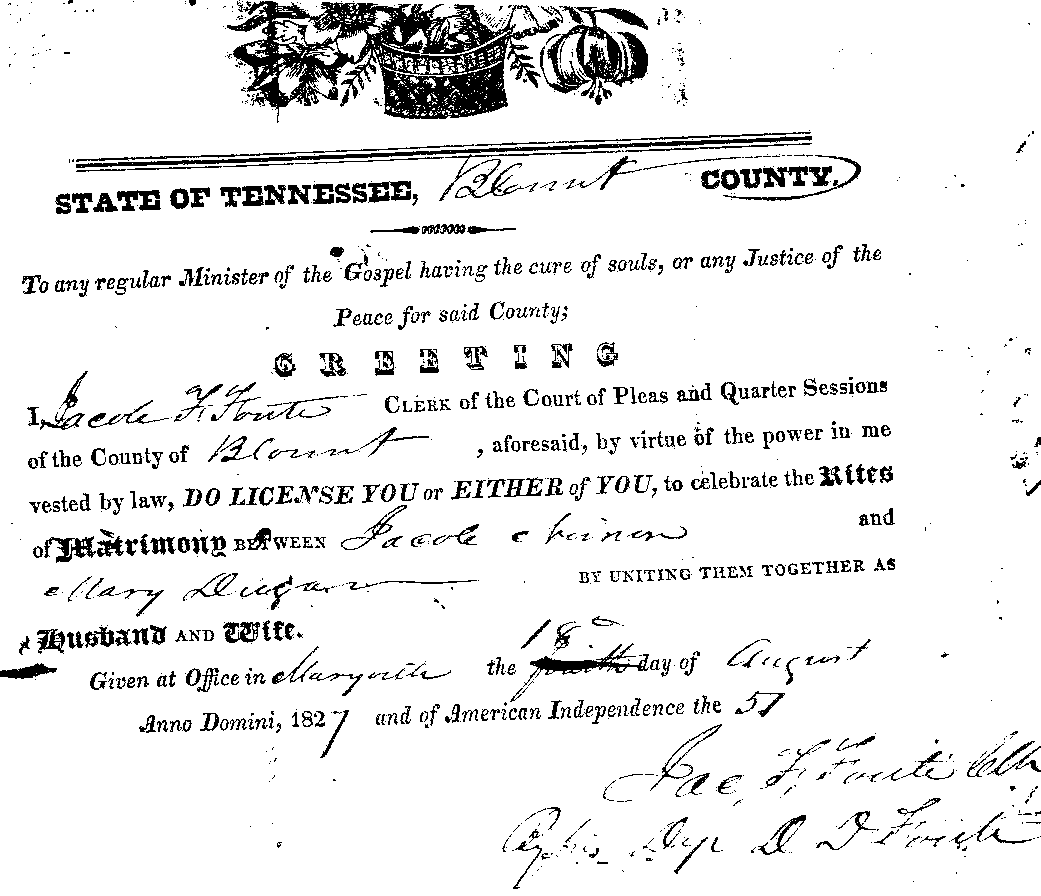 STATE OF TENNESSEE, Blount COUNTY.
To any regular Minister of the Gospel having the cure of souls, or any Justice of the
Peace for said County;
GREETING
I, Jacob F. Foute CLERK of the Court of Pleas and Quarter Sessions
of the County of Blount , aforesaid, by virtue of the power in me
vested by law, DO LICENSE YOU or EITHER of YOU, to celebrate the Rites
of Matrimony BETWEEN Jacob and
Mary Dugan BY UNITING THEM TOGETHER AS
Husband AND Wife.
Given at Office in Maryville the 18 day of August
Anno Domini, 1827 and of American Independence the 51
Jac. F. Foute Clk
By his Dep D D Foute